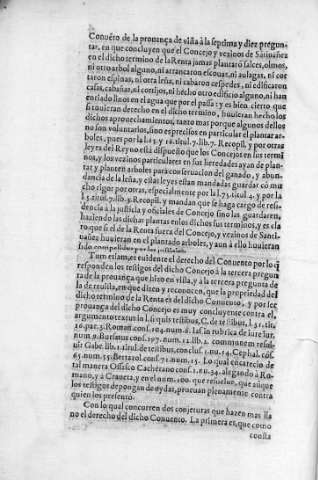 Conuéto de la prouança de viña à la septima y diez pregun-
tas, en que concluyen que el Concejo y vezinos de Santiuañez
en el dicho termino de la Renta jamas plantarō salces, olmos,
ni otro arbol alguno, ni arrancaron escouas, ni aulagas, ni cor
taron espinas, ni otra leña, ni cabaron cespedes, ni edificaron
casas, cabañas, ni cortijos, ni hecho otro edificio alguno, ni han
en el agua que por el passa: y es bien cierto que
si tuuieran derecho en el dicho termino, huuieran hecho los
dichos aprouechamientos, tanto mas porque algunos dellos
no son voluntarios, sino precisos en particular el plantar ar-
boles, pues por la l. 15 y 16. titul. 7. lib. 7. Recopil. y por otras
leyes del Reyno està dispuesto que los Concejos en sus termi
nos, y los vezinos particulares en sus heredades ayan de plan-
tar y planten arboles para conseruacion del ganado, y abun-
dancia de la leña, y estas leyes estan mandadas guardar cō mu
cho rigor por otras, especialmente por la l. 73. titul. 4. y por la
titul. lib. Recopil. y mandan que se haga cargo de resi-
dencia à la justicia y oficiales de Concejo sino las guardaren,
haziendo las dichas plantas en los dichos sus terminos, y es cla
ro que si el de la Renta fuera del Concejo, y vezinos de Santi-
uañez huuieran en el plantado arboles, y aun à ello huuieran
sido compelidos por las justicias.
Tum etiam, es euidente el derecho del Conuento por lo q̄
responden los testigos del dicho Concejo à la tercera pregun
ta de la prouança que hizo en vista, y à la tercera pregunta de
la de reuista, en que dizen y reconocen, que la propriedad del
dicho termino de la Renta es del dicho Conuento, y por ser
prouança del dicho Concejo es muy concluyente contra el,
argumento textu in l. si quis testibus, C. de testibus, l. 31. tit.
16. par. 3. Roman. cons. 194. num. 8. Ias. in rubrica de iure iur.
num. 9. Bursatus cons. 197. num. 12. lib. 2. communem resul-
uit Gabr. lib. 1. titul. de testibus, conclus. 1. nu. 54. Cephal. cōs.
65. num. 55. Bertazol cons. 71. num. 15. Lo qual encarecio de
tal manera Ofasco Cacherano cons. 1. nu. 34. alegando à Ro-
mano, y à Craueta, y en el num. 100. que resueluo, que aunque
los testigos depongan de oydas, procluyen plenamento contra
quien los presentò.
Con lo qual concurren dos conjeturas que hazen mas lla
no el derecho del dicho Conuento. La primera es, que como
consta